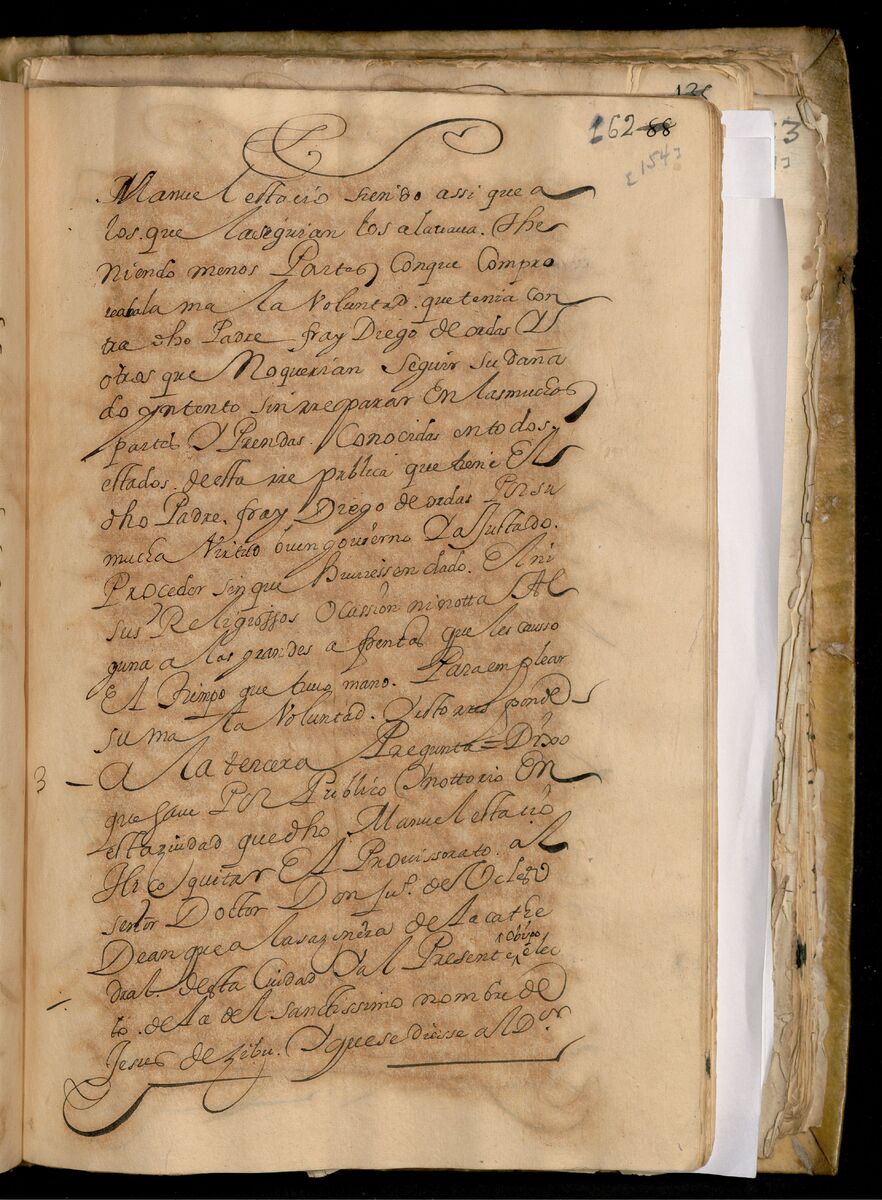 126
162 88
[154]
3
Manuel estacio siendo assi que a
los que la seguian los alavava. Othe
niendo menos Partes, Conque Compro
vaba la ma la Voluntad. que tenia Con
tra dho Padre fray Diego de ordas Y
otros que No querian Seguir su daña
do yntento sin rreparar En las muchas
partes Y Prendas. Conocidas en todos
estados. de esta rre publica que tiene El
dho Padre. fray Diego de ordas Por su
mucha Virtud buen govierno Y a Justado.
Proceder sin que Huviessen dado. El ni
sus Religiossos Ocassion ni notta Al
guna a las grandes a frentas que les causso
El tiempo que tuvo mano. Para emplear
su ma la Voluntad. Y esto rresponde
3 – a la tercera Pregunta = Dixo
que save Por Publico Y nottorio En
esta ziudad que dho Manuel estacio
Hiço quitar El Provissorato. al
señor Doctor Don Ju.º de Veles
Dean que a la sazon era de la cathe
dral. desta Ciudad Y al Present e ^obispo elec
to. de la del. santissimo nombre de
Jesus de Zibu. Y que se diesse al D.or